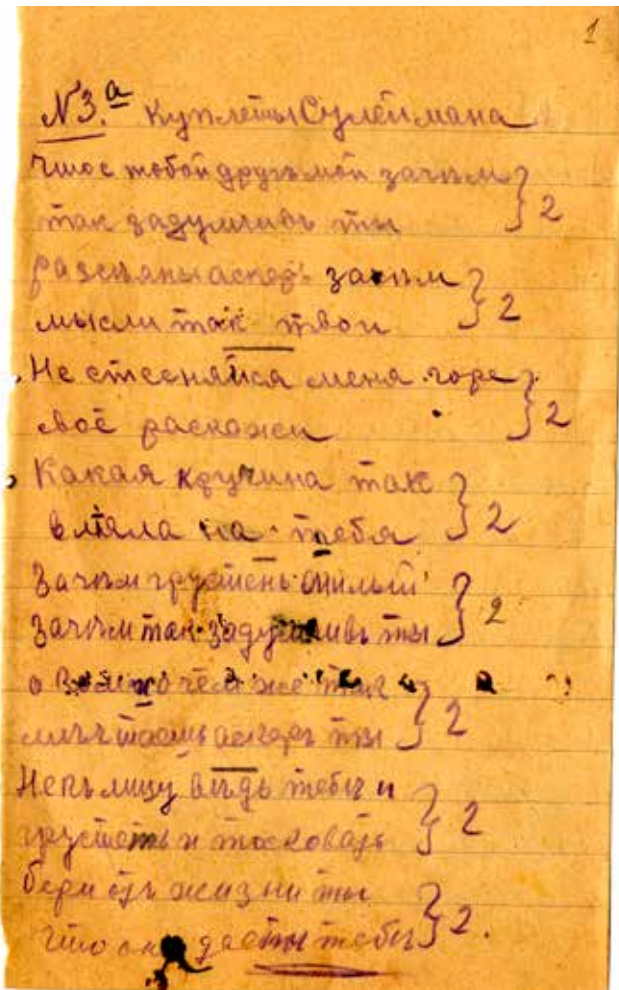 1
№3.а Куплеты Сулеймана
Что с тобой другъ мой зачѣм } 2
так задумчивъ ты
разсѣяны аскеръ зачѣм } 2
мысли так твои
Не стесняйся меня горе } 2
своё раскажи
Какая кручина так } 2
вляла на тебя
Зачѣм грустенъ милый } 2
Зачѣм так задумчивъ ты
о чём же так } 2
мѣчтаешь аскеръ ты
Некълицу вѣдь тебѣ и } 2
грустеть и тосковать
бери отъ жизни ты } 2.
что она дастъ тебѣ